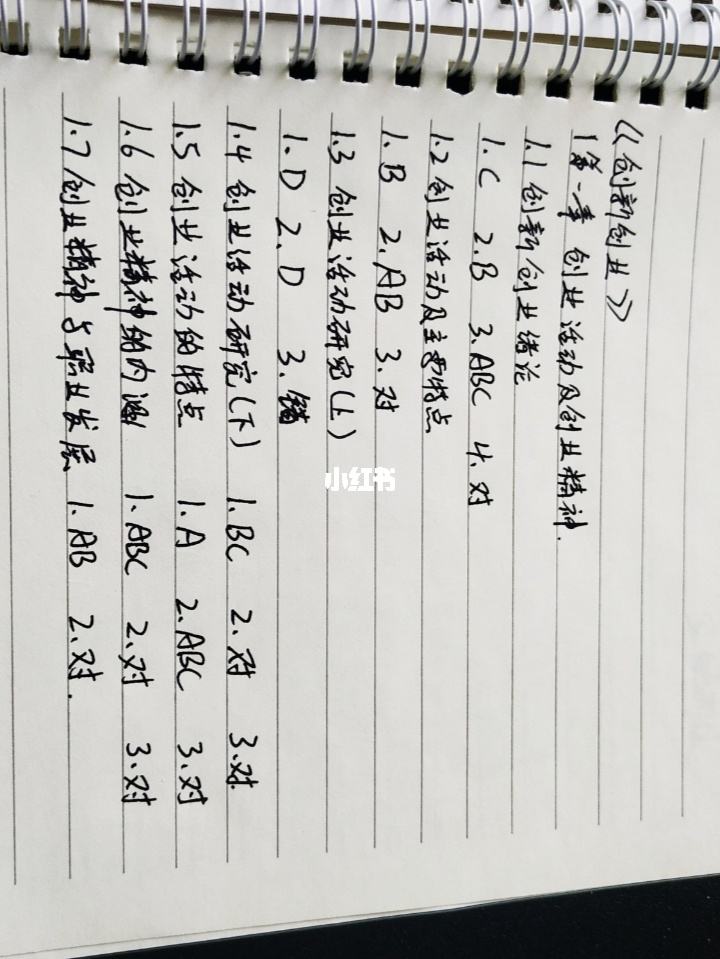 《创新创业》
第一章 创业活动及创业精神.
1.1 创新创业绪论
1.C 2.B 3.ABC 4.对
1.2 创业活动及主要特点
1.B 2.AB 3.对
1.3 创业活动研究(上)
1.D 2.D 3.错
1.4 创业活动研究(下) 1.BC 2.对 3.对
1.5 创业活动的特点 1.A 2.ABC 3.对
1.6 创业精神的内涵 1.ABC 2.对 3.对
1.7 创业精神与职业发展 1.AB 2.对.
小红书